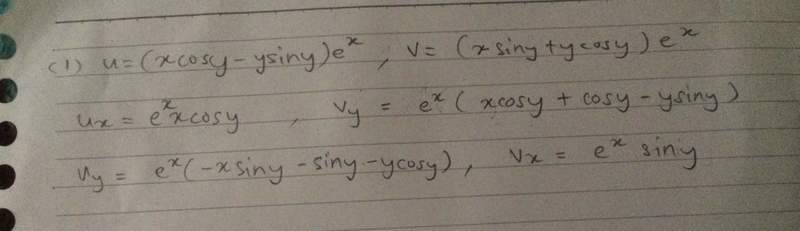 (1) u=(xcosy-ysiny)eˣ, v= (xsiny+ycosy)eˣ
uₓ = eˣxcosy , vᵧ = eˣ(xcosy + cosy-ysiny)
uᵧ = eˣ(-xsiny -siny-ycosy), vₓ = eˣ siny